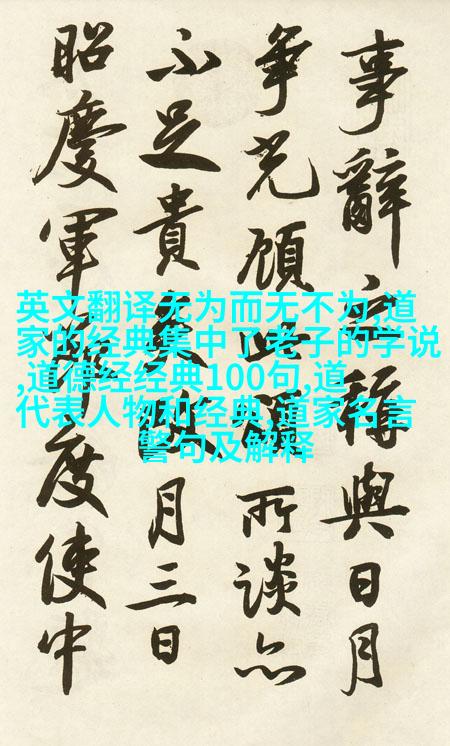 事辭稱與日月
爭光顧此頌所談亦
不足貴月三日
昭慶軍節度使中
英文翻译无为而无不为,道
家的经典集中了老子的学说
,道德经经典100句,道
代表人物和经典,道家名言
警句及解释